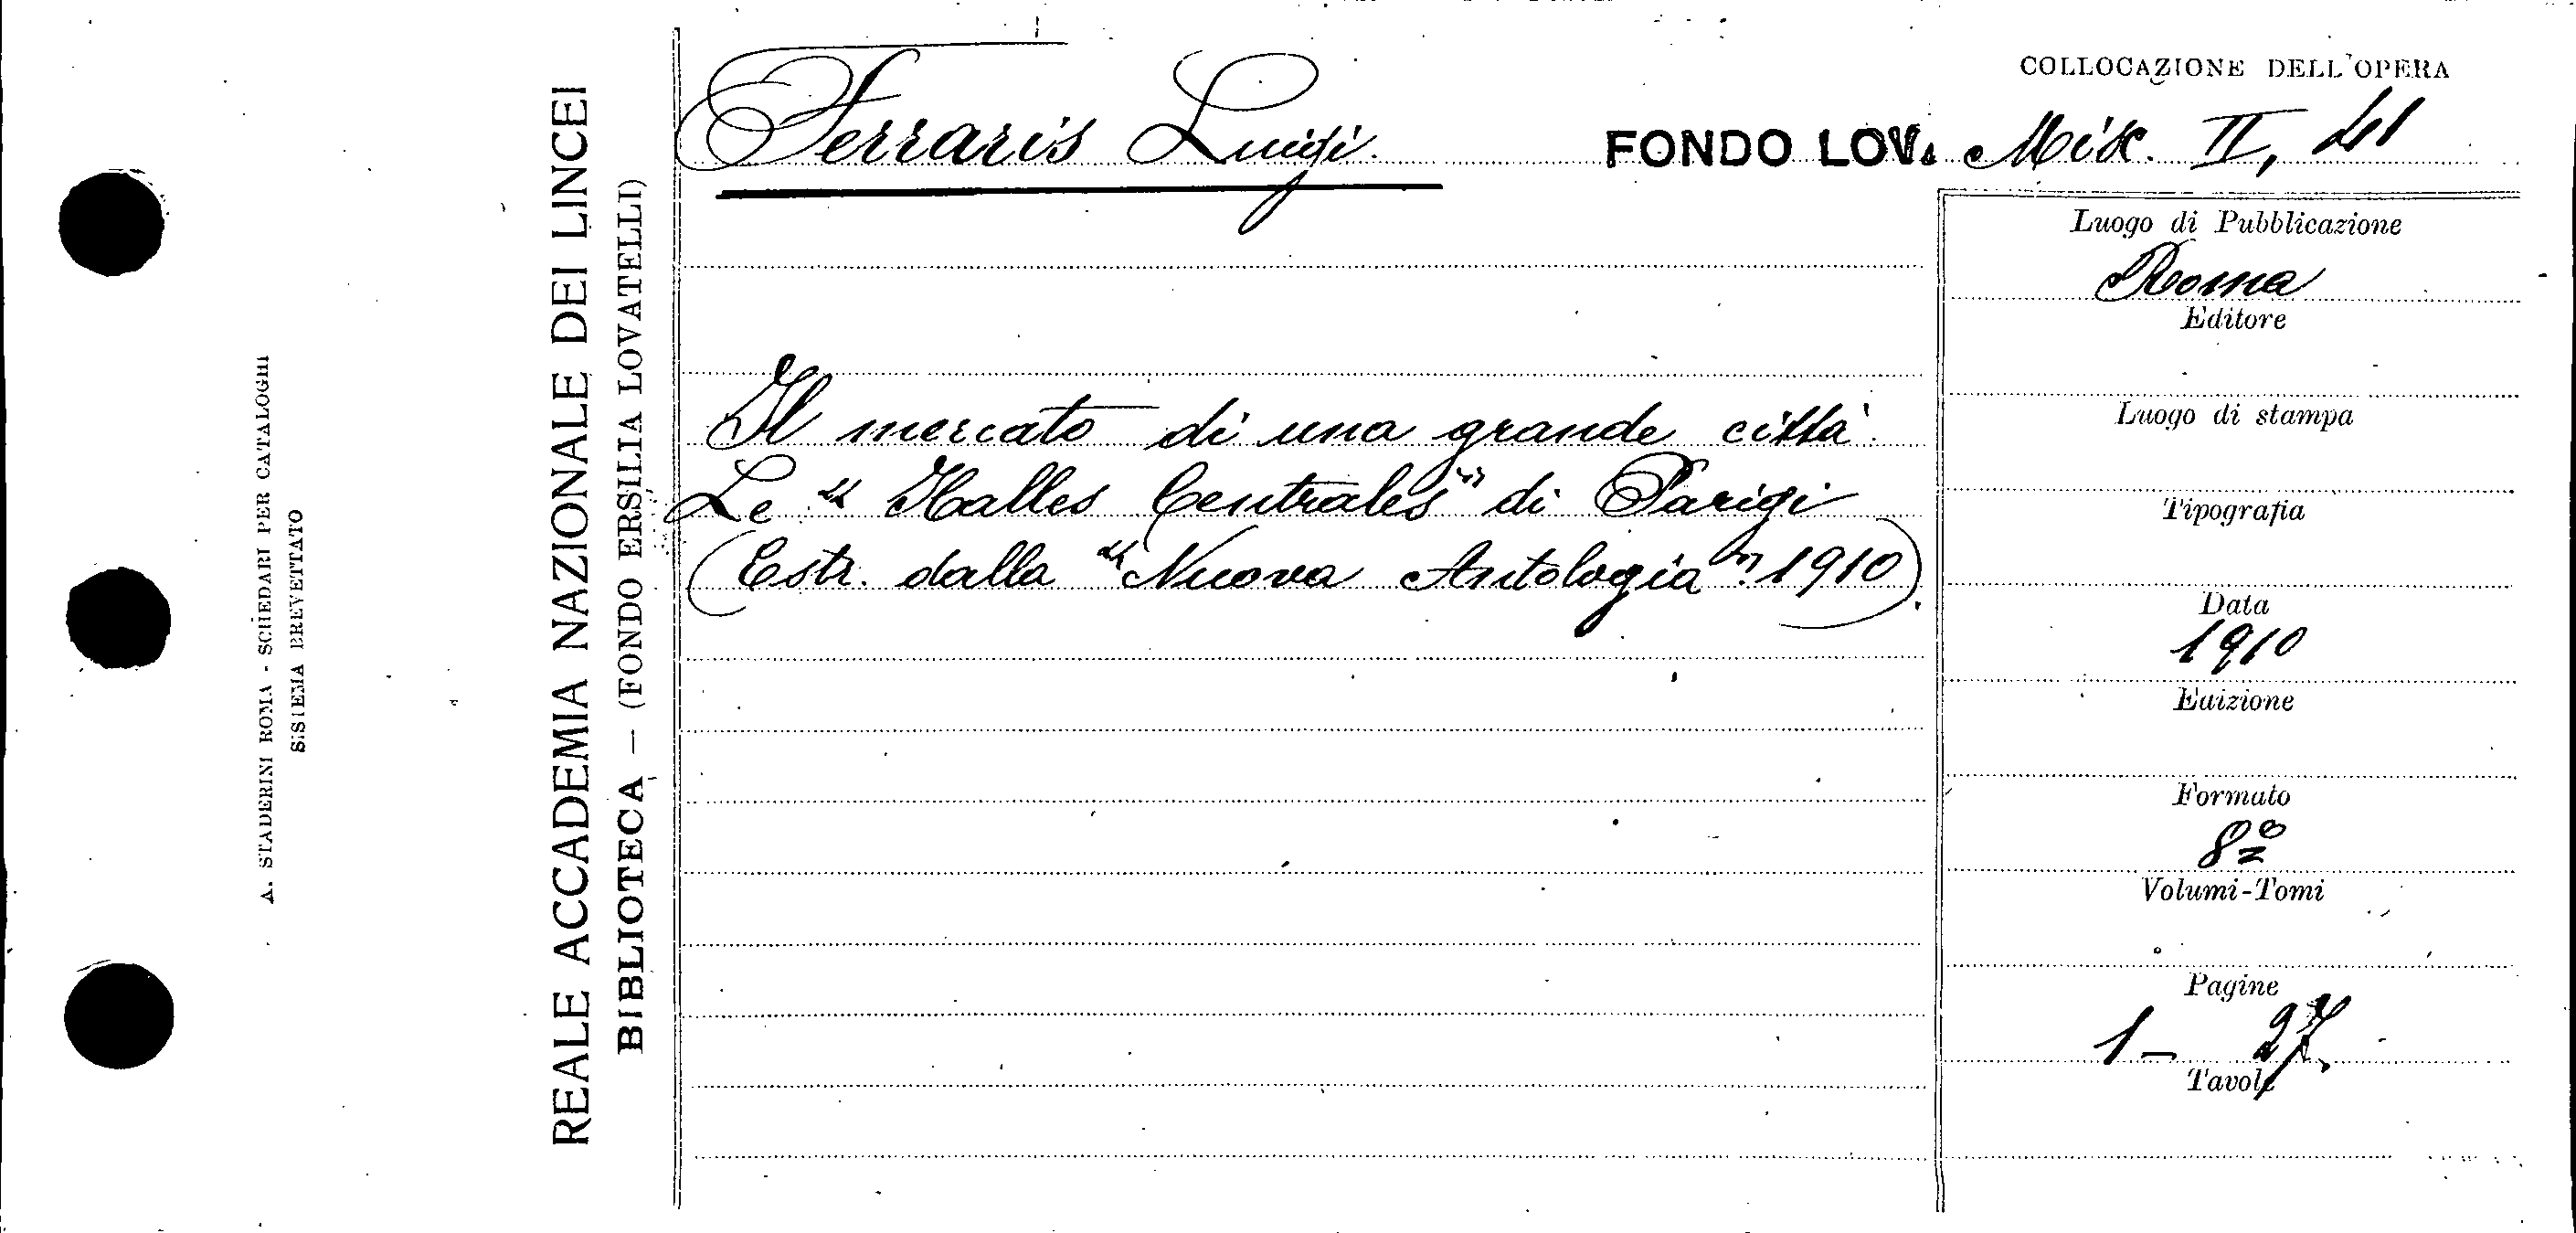 A. STADERINI ROMA - SCHEDARI PER CATALOGHI
SISTEMA BREVETTATO
REALE ACCADEMIA NAZIONALE DEI LINCEI
BIBLIOTECA — (FONDO ERSILIA LOVATELLI)
Ferraris Luigi.
COLLOCAZIONE DELL'OPERA
FONDO LOV. Misc. II, 41
Il mercato di una grande città.
Le "Halles Centrales" di Parigi
(Estr. dalla "Nuova Antologia". 1910).
Luogo di Pubblicazione
Roma
Editore
Luogo di stampa
Tipografia
Data
1910
Edizione
Formato
8º
Volumi-Tomi
Pagine
1- 27.
Tavole